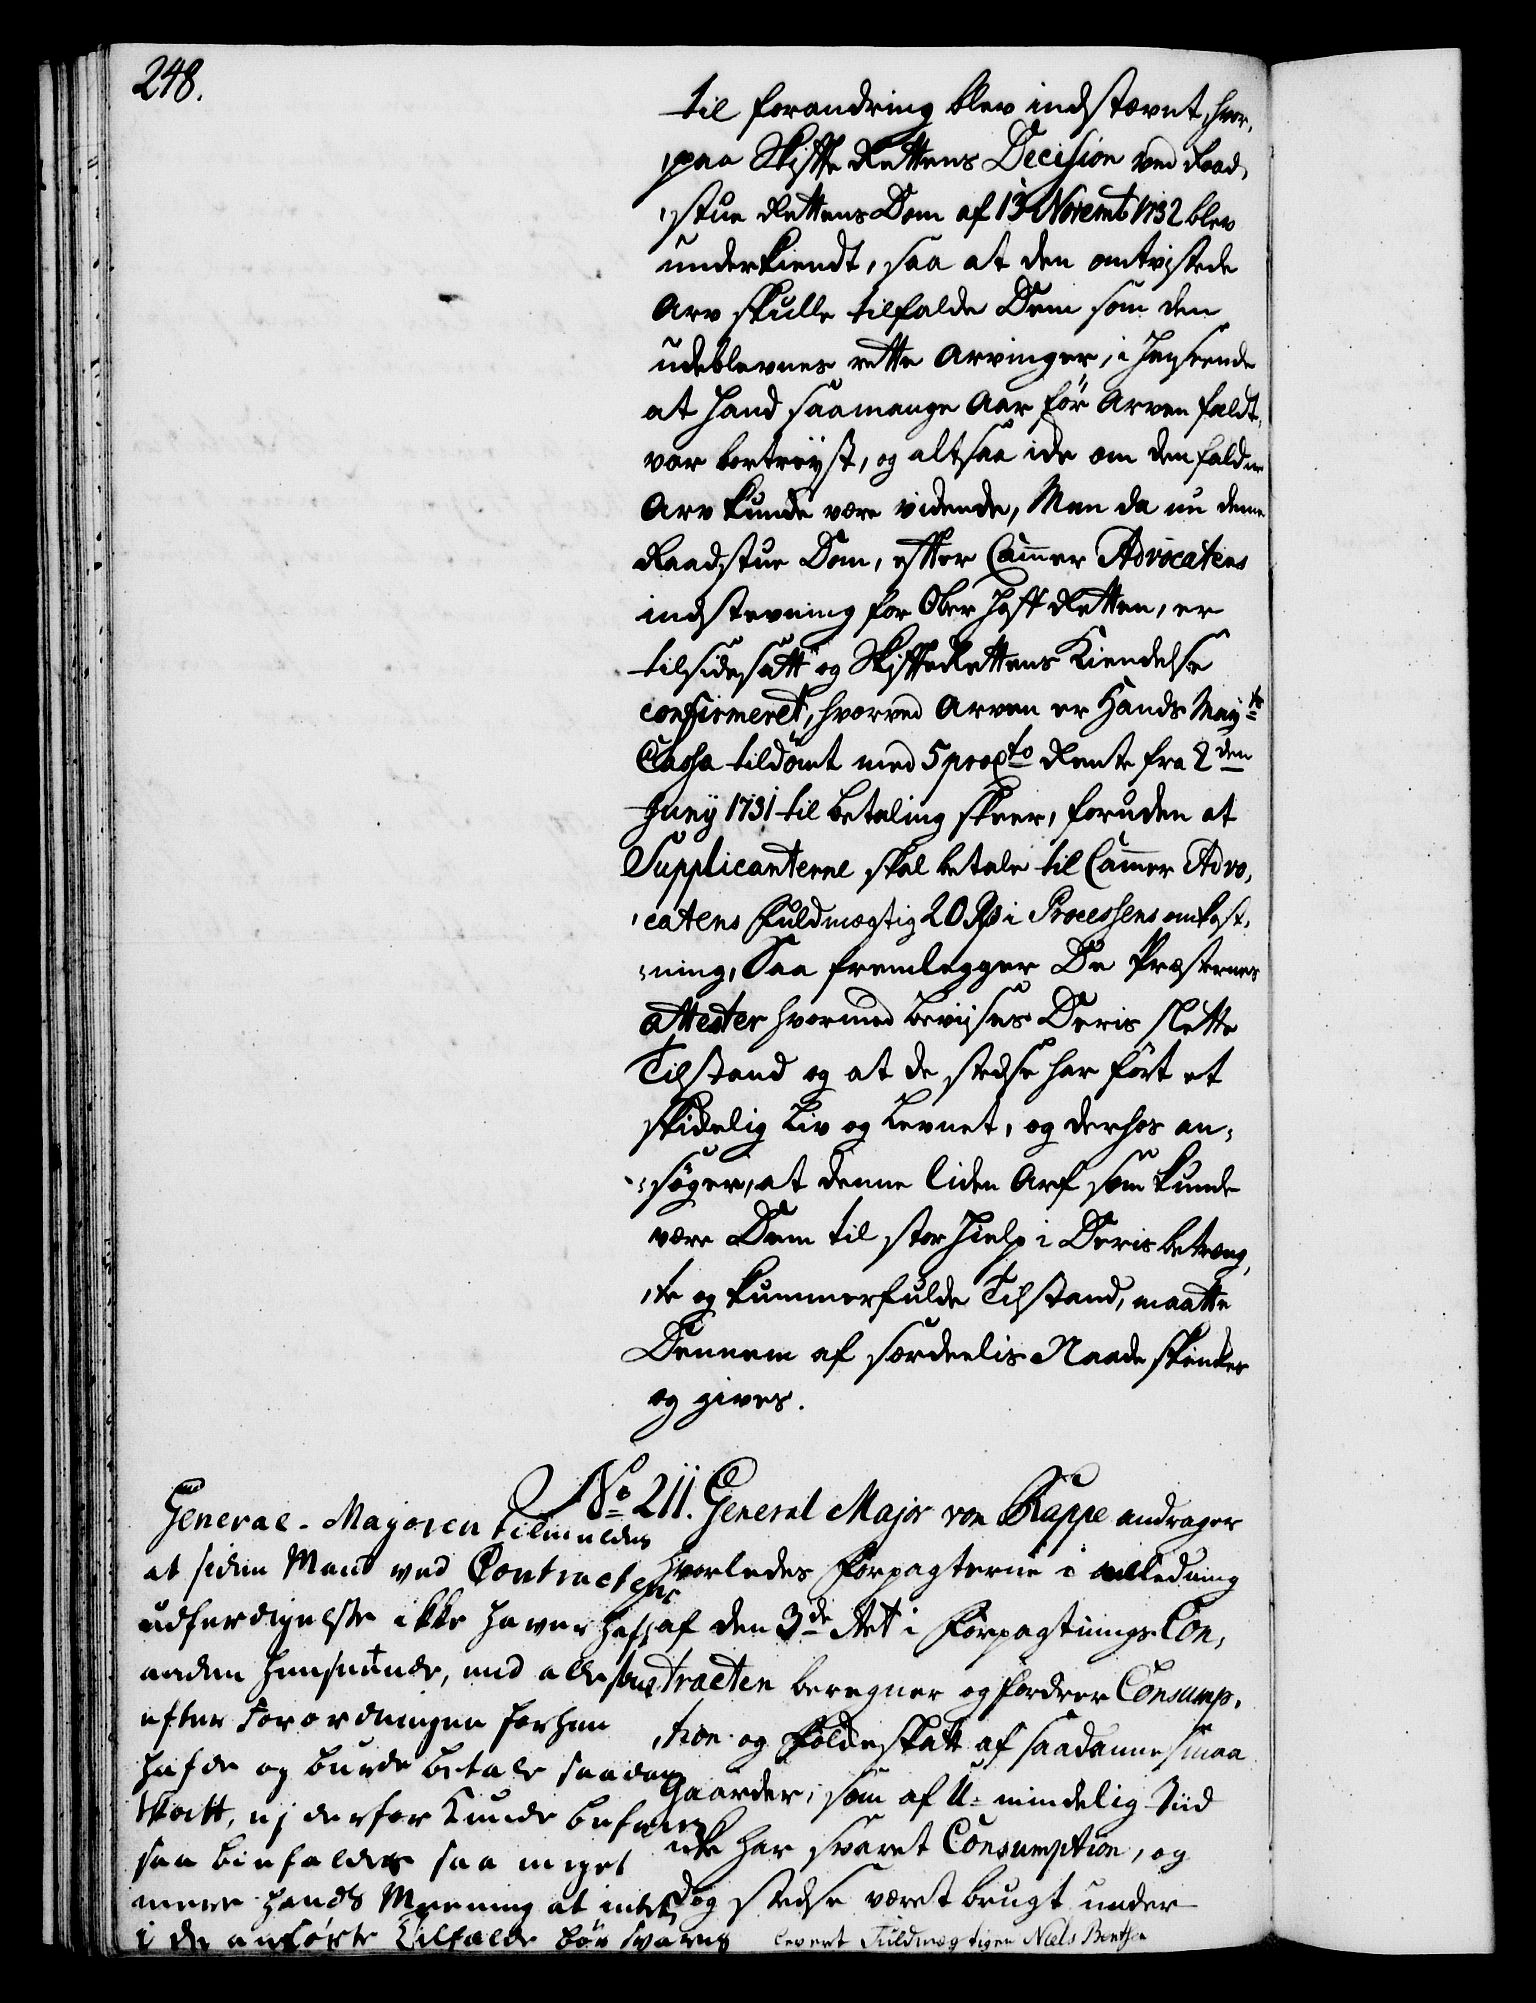 248.
til forandring blev indstævnt, hvor,
,paa Skifte Rettens Decision ved Raad,
,stue Rettens Dom af 13 Novembr 1732 blev
underkiendt, saa at den omtvistede
Arv skulle tilfalde Dem som den
udeblevnes rette Arvinger, i Henseende
at hand saamange Aar før Arven faldt,
var bortreyst, og altsaa icke om den faldne
Arv kunde være vidende, Men da nu denne
Raadstue Dom, efter Cammer Advocatens
indstevning for Ober Hoff Retten, er
tilsidesatt og Skifte Rettens Kiendelse
confirmeret, hvorved Arven er Hands Mayts
Cassa tildømt med 5 pro Cto Rente fra 2den
Junij 1731 til betaling skeer, foruden at
Supplicanterne skal betale til Cammer Advo,
,catens Fuldmægtig 20 Rd i Processens omkost,
,ning, Saa fremlegger De Præsternes
attester hvormed beviises Deris slette
Tilstand og at de stedse har ført et
skikelig Liv og Levnet, og derhos an,
,søger, at denne liden Arf som kunde
være Dem til stor Hielp i Deris betræng,
,te og kummerfulde Tilstand, maatte
Dennem af særdeelis Naade skienkes
og gives.
No 211. General Major von Kappe andrager
hvorledes Forpagterne i anledning
af den 3de Art i Forpagtnings Con,
tracten beregner og fordrer Consump,
,tion og Folkeskatt af saadanne smaa
Gaarder, som af U-mindelig Tiid
icke har svaret Consumption, og
dog stedse været brugt under
General-Majoren tilmeldes
at siden Mand ved Contractens
udferdigelse ikke haver haft
anden Henseende, end alle som
efter Forordningen forhen
hafde og burde betale saadan
Skatt, ej derfor kunde befries
saa biefaldes saa meget
meere hands Meening at intet
i de anførte Tilfælde bør svares
levert Fuldmægtigen Niels Benthen